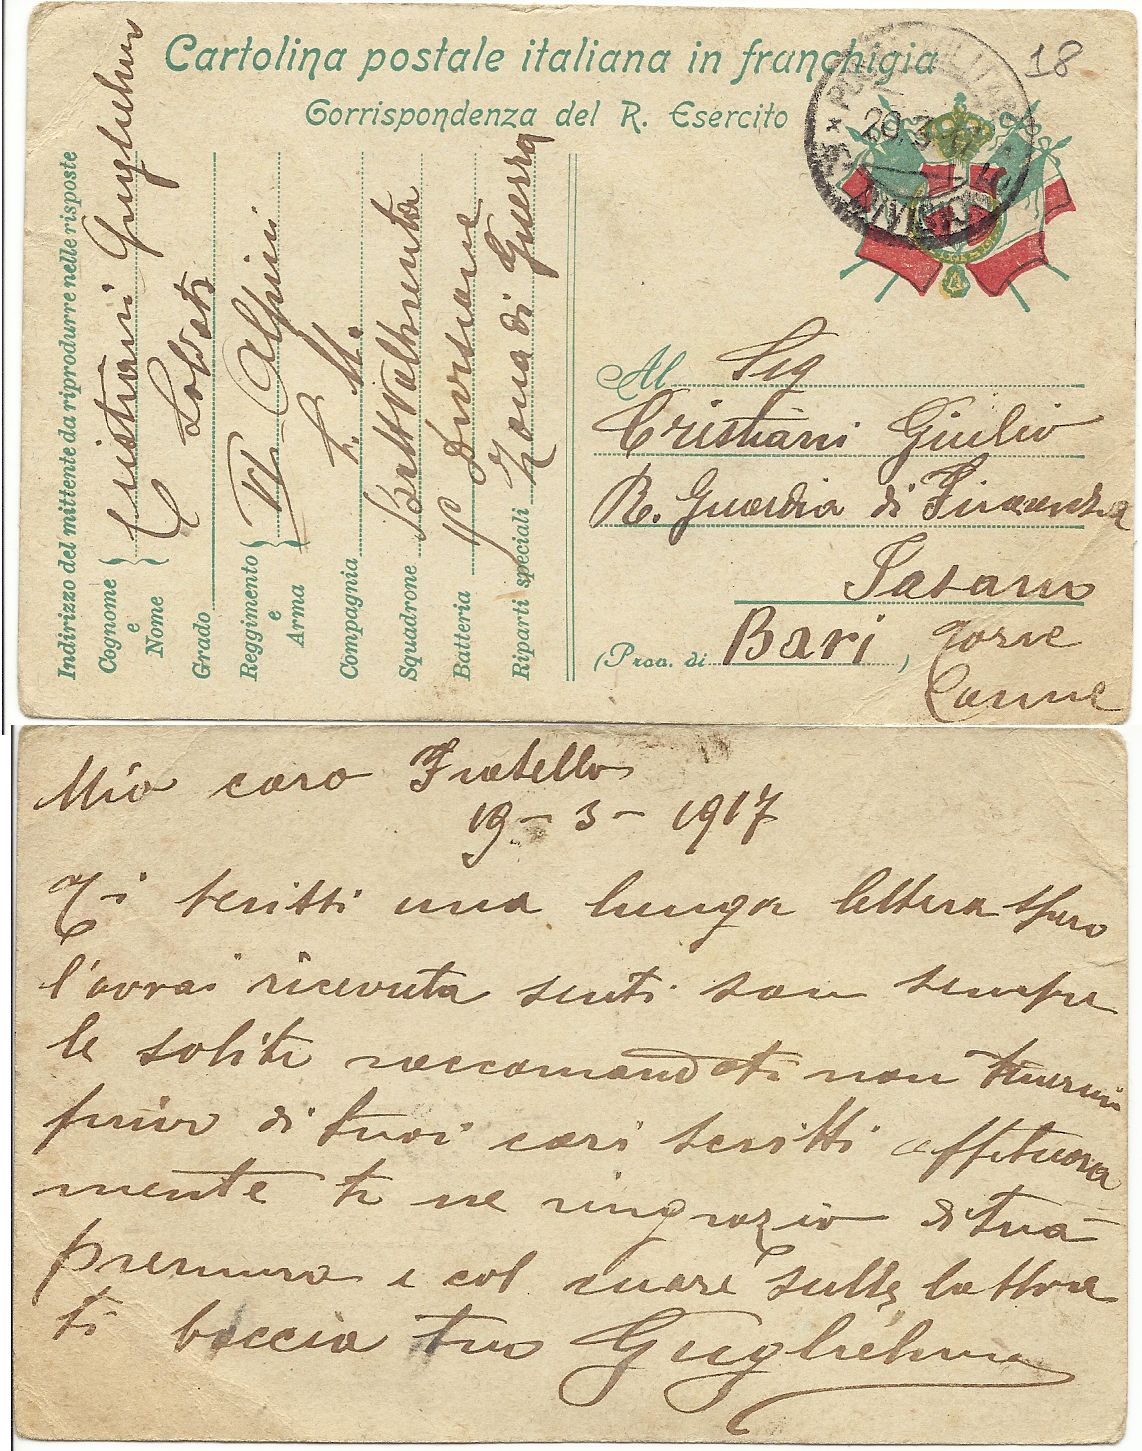 Cartolina postale italiana in franchigia
18
Corrispondenza del R. Esercito
POSTA MILITARE
20.3.17
DIVISIONE
Indirizzo del mittente da riprodurre nelle risposte
Cognome e Nome } Cristiani Guglielmo
Soldato
Grado
Reggimento e Arma } VI Alpini
Compagnia
Squadrone Batt Val
Batteria Divisione
Riparti speciali Zona di Guerra
Al Sig
Cristiani Giulio
R. Guardia di Finanza
Fasano
(Prov. di Bari) Torre
Canne
Mio caro Fratello
19-3-1917
Ti scritti una lunga lettera spero
l'avrai ricevuta senti son sempre
le soliti raccomandati non
privo di tuoi cari scritti affetuosa
mente ti ne ringrazio di tua
premura e col cuore sulle
ti baccio tuo Guglielmo